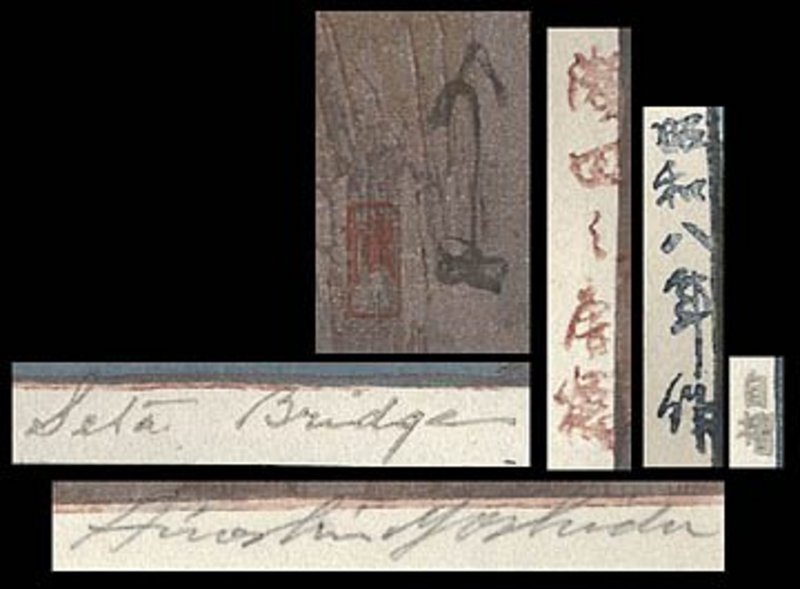 瀬田之唐橋
昭和八年作
Seta Bridge
Hiroshi Yoshida